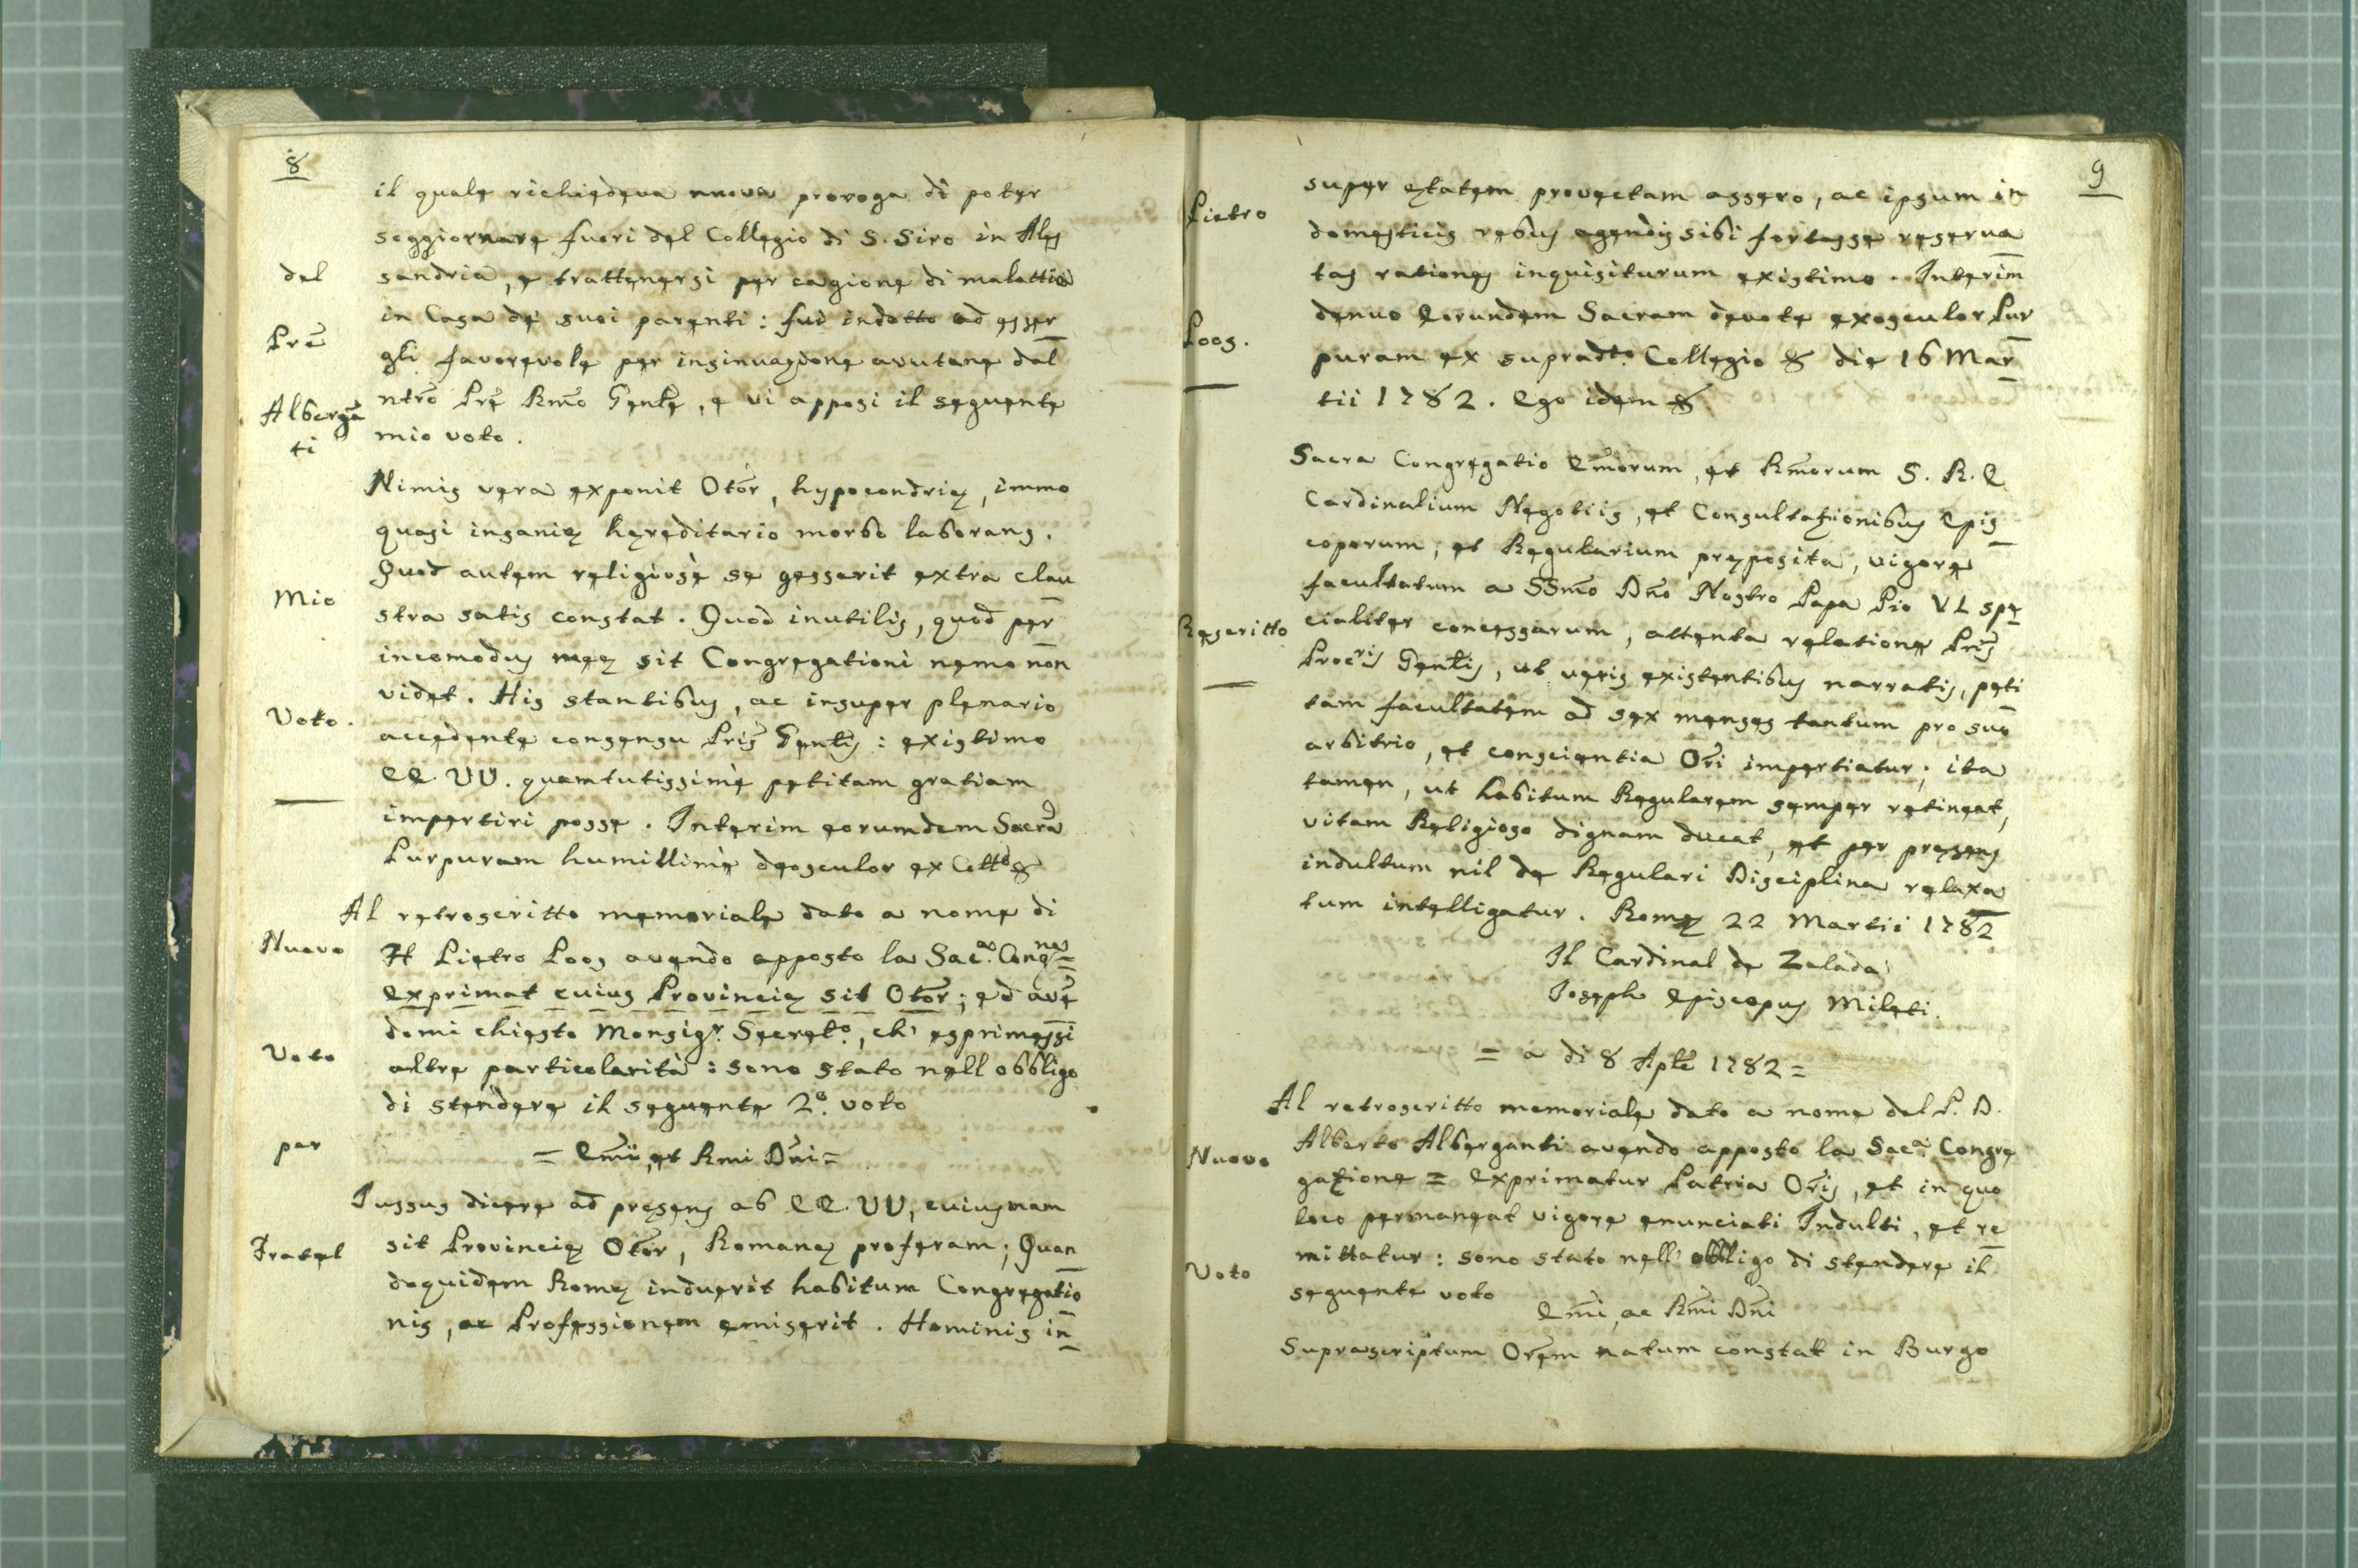 8
il quale richiedeva nuova proroga di poter
soggiornare fuori del Collegio di S. Siro in Ales
del
sandria, e trattenersi per cagione di malattia
in Casa de suoi parenti: fui indotto ad esser
Prē
gli favorevole per insinuazione avutane dal
Albergā
ti
ntrō Prē Rmō Genle, e vi apposi il seguente
mio voto.
Nimis vera exponit Otōr, hypocondrię, immo
quasi insanię hęreditario morbo laborans.
Quod autem religiosè se gesserit extra clau
Mio
stra satis constat. Quod inutilis, quod per
incomodus meę sit Congregationi nemo non
videt. His stantibus, ac insuper plenario
Voto.
accedente consensu Pris Genlis: existimo
EE. VV. quamtutissimè petitam gratiam
impertiri posse. Interim eorumdem Sacrā
Purpuram humillimè deosculor ex Collo &
Al retroscritto memoriale dato a nome di
Nuovo
Fr Pietro Poos avendo apposto la Sac.a Congne =
Exprimat cuius Provincię sit Otōr; ed avē
domi chiesto Monsigr. Secreto., ch' esprimessi
Voto
altre particolarità: sono stato nell obbligo
di stendere il seguente 2o. voto
per
= Emīi, et Rmi Dn̄i =
Jussus dicere ad pręsens ab EE. VV, cuiusnam
Fratel
sit Provincię Otōr, Romanę proferam; Quan
doquidem Romę induerit habitum Congregatio
nis, ac Professionem emiserit. Hominis in
9
Pietro
super ętatem provectam assero, ac ipsum in
domesticis rebus agendis sibi fortasse reserva
tas rationes inquisiturum existimo. Interim
Poos.
denuo Eorundem Sacram devote exosculor Pur
puram ex supradto. Collegio & die 16 Mar
tii 1782. Ego idem &
Sacra Congregatio Em̄orum, et Rm̄orum S. R. E
Cardinalium Negotiis, et Consultazionibus Epis
coporum, et Regularium pręposita, vigore
facultatum a SSm̄o Dn̄o Nostro Papa Pio VI. spe
Rescritto
cialiter concessarum, attenta relatione Pris
Procris Genlis, ut veris existentibus narratis, peti
tam facultatem ad sex menses tantum pro suo
arbitrio, et conscientia Ōri impertiatur; ita
tamen, ut habitum Regularem semper retineat,
vitam Religioso dignam ducat, et per pręsens
indultum nil de Regulari Disciplina relaxa
tum intelligatur. Romę 22 Martii 1782
Il Cardinal de Zelada
Joseph Episcopus Mileti.
= a di 8 Aplē 1782 =
Al retroscritto memoriale dato a nome del P. D.
Alberto Alberganti avendo apposto la Sac.a Congre
Nuovo
gazione = Exprimatur Patria Ōris, et in quo
loco permaneat vigore enunciati Indulti, et re
mittatur: sono stato nell' obbligo di stendere il
Voto
seguente voto
Em̄i, ac Rm̄i Dn̄i
Suprascriptum Ōrem natum constat in Burgo